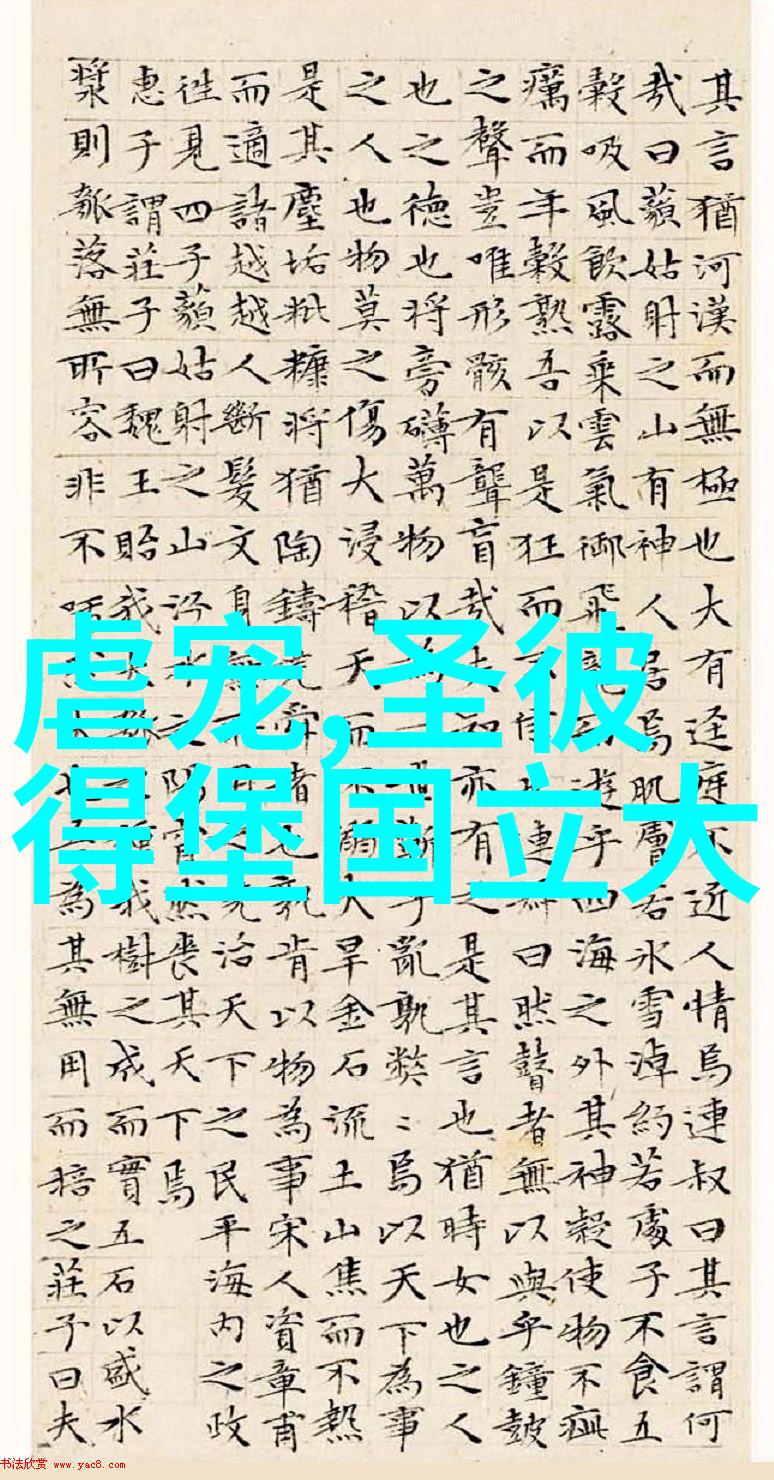 其言猶河漢而無極也大有逕庭不近人情焉連叔曰其言謂何
哉曰藐姑射之山有神人居焉肌膚若冰雪淖約若處子不食五
穀吸風飲露乘雲氣御飛龍遊乎四海之外其神凝使物不疵
癘而年穀熟吾以是狂而不信連叔曰然瞽者無以與乎鐘皷
之聲豈唯形骸有聾盲哉夫知亦有之是其言也猶時女也之人
也之德也將旁礴萬物以為一世蘄乎亂孰弊〻焉以天下為事
之人也物莫之傷大浸稽天而不溺大旱金石流土山焦而不熱
是其塵垢粃糠將猶陶鑄堯舜者也孰肯以物為事宋人資章甫
而適諸越越人斷髮文身無之堯治天下之民平海內之政
往見四子藐姑射之山汾水之陽窅然喪其天下焉
惠子謂莊子曰魏王貽我大種我樹之成而實五石以盛水
漿則瓠落無所容非不為其無用而掊之莊子曰夫
虐宠,圣彼
得堡国立大
书法欣赏 www.yac8.com